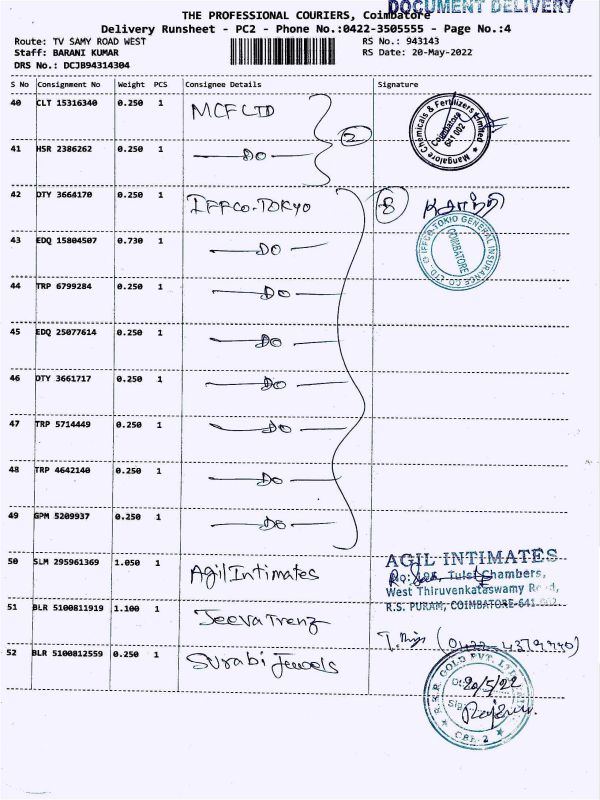 DOCUMENT DELIVERY
THE PROFESSIONAL COURIERS, Coimbatore
Delivery Runsheet - PC2 - Phone No.:0422-3505555 - Page No.:4
Route: TV SAMY ROAD WEST RS No.: 943143
Staff: BARANI KUMAR RS Date: 20-May-2022
DRS No.: DCJB94314304
S No Consignment No Weight PCS Consignee Details Signature
40 CLT 15316340 0.250 1 MCF LTD
Mangalore Chemicals & Fertilizers Limited
Coimbatore
641 002
41 HSR 2386262 0.250 1 DO 2
42 DTY 3664170 0.250 1 IFFCO-TOKYO 8 சுகாந்தி
IFFCO-TOKIO GENERAL INSURANCE CO. LTD.
COIMBATORE
43 EDQ 15804507 0.730 1 DO
44 TRP 6799284 0.250 1 DO
45 EDQ 25077614 0.250 1 DO
46 DTY 3661717 0.250 1 DO
47 TRP 5714449 0.250 1 DO
48 TRP 4642140 0.250 1 DO
49 GPM 5209937 0.250 1 DO
50 SLM 295961369 1.050 1 Agil Intimates
AGIL INTIMATES
No: 195, Tulsi Chambers,
West Thiruvenkataswamy Road,
R.S. PURAM, COIMBATORE-641 002
51 BLR 5100811919 1.100 1 Jeeva Trenz
52 BLR 5100812559 0.250 1 Surabi Jewels
R.R.R. GOLD PVT. LTD
20/5/22
Sig
CBE-2